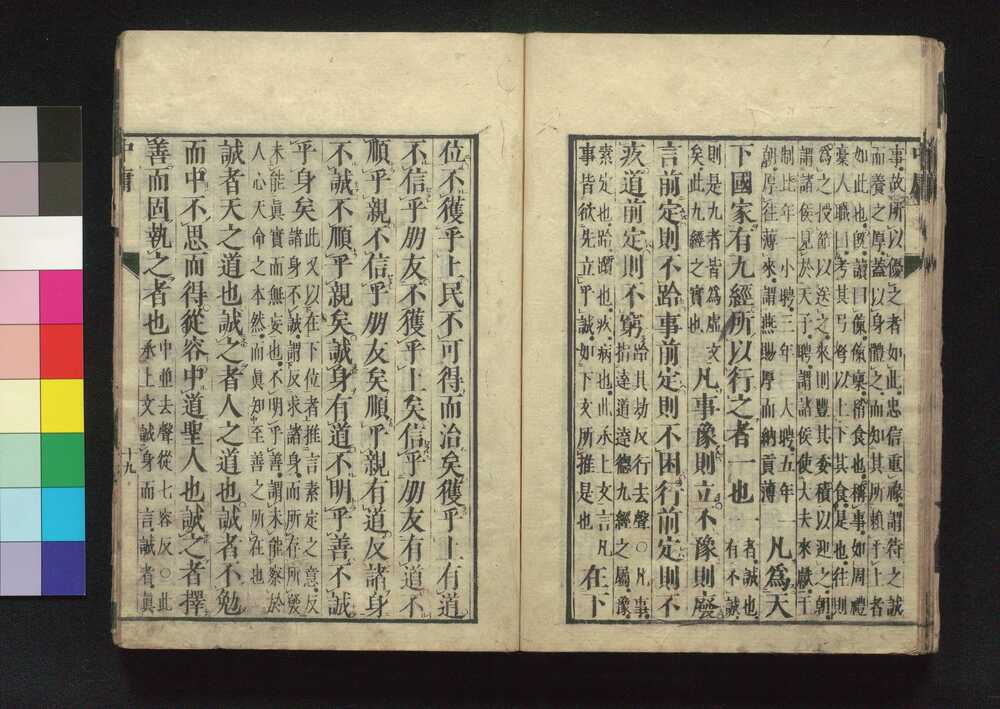 事故所以優之者如此忠信重祿謂待之誠
而養之厚蓋以身體之而知其所賴乎上者
如此也既讀曰餼餼稟稍食也稱事如周禮
稾人職曰考其弓弩以上下其食是也往則
爲之授節以送之來則豐其委積以迎之朝
謂諸侯見於天子聘謂諸侯使大夫來獻王
制比年一小聘三年一大聘五年一
朝厚往薄來謂燕賜厚而納貢薄
凡爲天
下國家有九經所以行之者一也
一者誠也一
有不誠
則是九者皆爲虛文
矣此九經之實也
凡事豫則立不豫則廢
言前定則不跲事前定則不困行前定則不
疚道前定則不窮
跲其劫反行去聲○凡事
指達道達德九經之屬豫
素定也跲躓也疚病也此承上文言凡
事皆欲先立乎誠如下文所推是也
在下
位不獲乎上民不可得而治矣獲乎上有道
不信乎朋友不獲乎上矣信乎朋友有道不
順乎親不信乎朋友矣順乎親有道反諸身
不誠不順乎親矣誠身有道不明乎善不誠
乎身矣
此又以在下位者推言素定之意反
諸身不誠謂反求諸身而所存所發
未能眞實而無妄也不明乎善謂未能察於
人心天命之本然而眞知至善之所在也
誠者天之道也誠之者人之道也誠者不勉
而中不思而得從容中道聖人也誠之者擇
善而固執之者也
中並去聲從七容反○此
承上文誠身而言誠者眞
中庸
十九